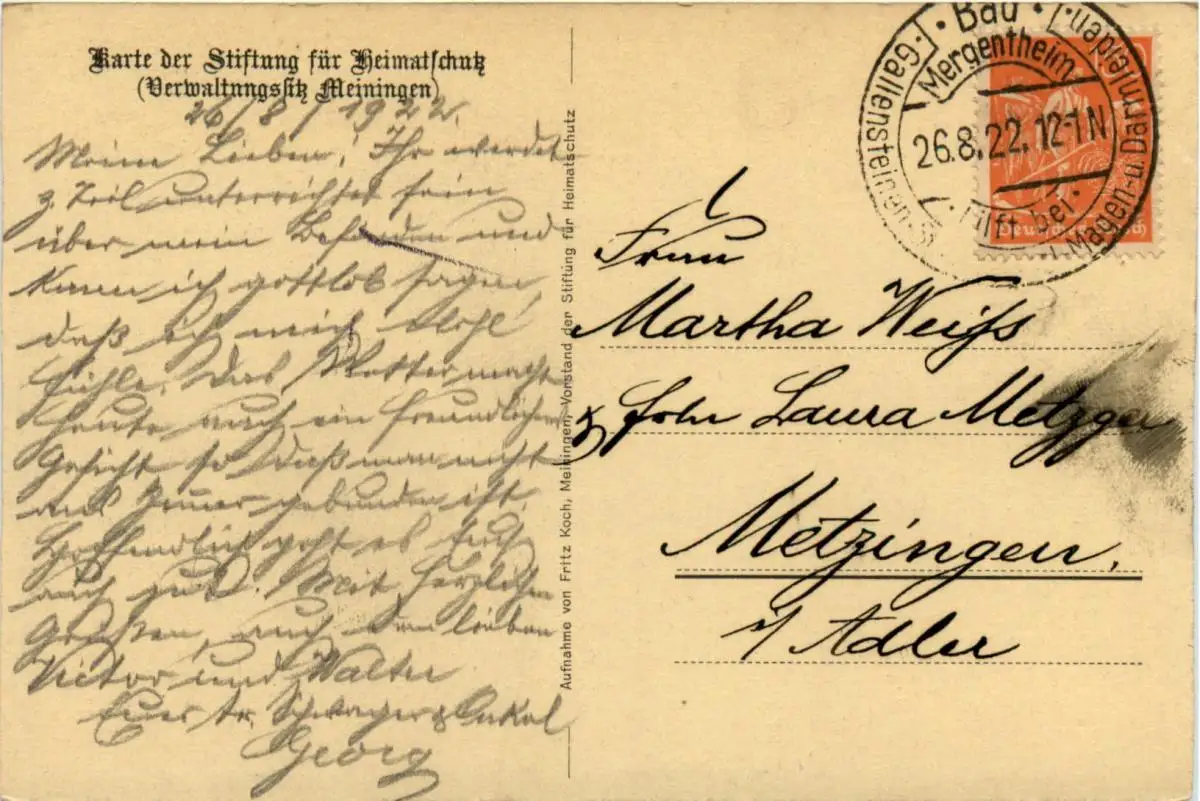 Karte der Stiftung für Heimatschutz
(Verwaltungssitz Meiningen)
26/8/1922.
Meine Lieben! Ihr werdet
z. Teil unterrichtet sein
über mein Befinden und
kann ich gottlob sagen,
daß ich mich wohl
fühle. Das Wetter macht
heute auch ein freundliches
Gesicht so daß man nicht
ans Zimmer gebunden ist.
Hoffendlich geht es Euch
auch gut. Mit herzlichen
Grüssen, auch den lieben
Victor und Walter
Euer tr. Schwager & Onkel
Georg
Aufnahme von Fritz Koch, Meiningen, Vorstand der Stiftung für Heimatschutz
Bad
Mergentheim
26.8.22. 12-1N
hilft bei
Gallensteinen
Magen- u. Darmleiden
Deutsches Reich
Frau
Martha Weiss
Laura Metzger
Metzingen.
i/ Adler